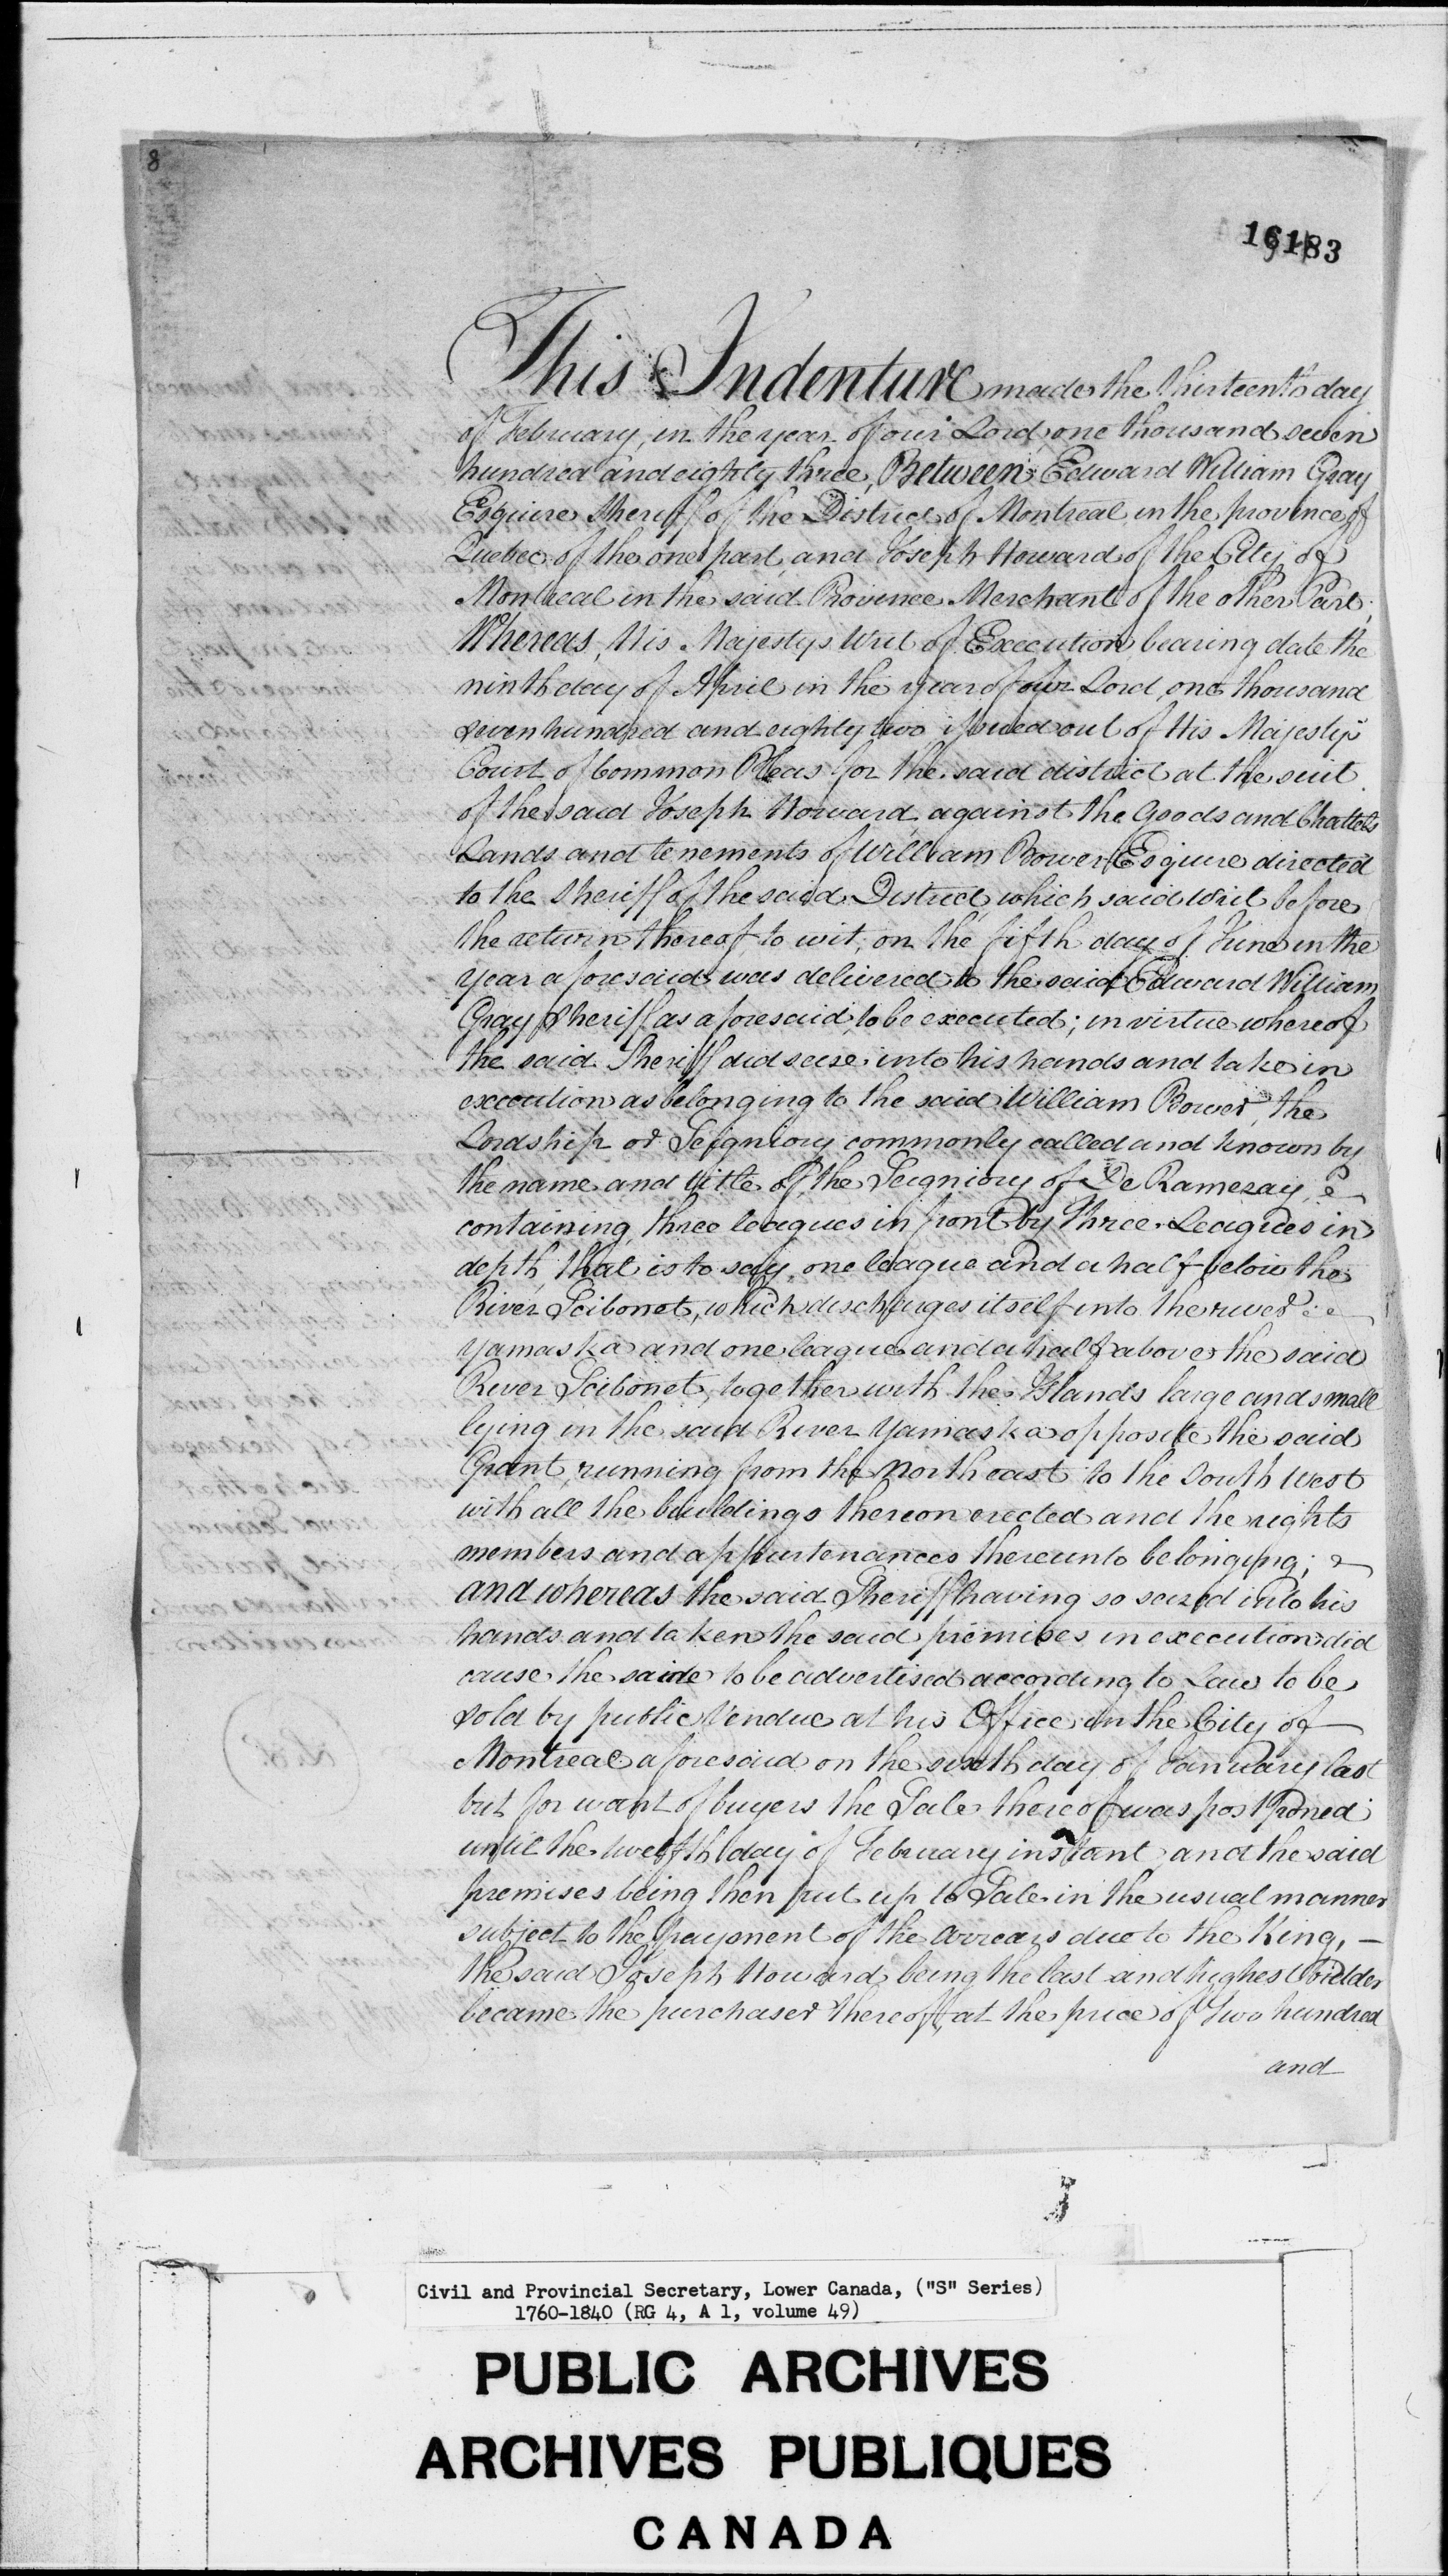 8
16183
This Indenture made the thirteenth day
of February, in the year of our Lord, one thousand seven
hundred and eighty three, Between Edward William Gray
Esquire Sheriff of the District of Montreal in the province of
Quebec of the one part, and Joseph Howard of the City of
Montreal in the said Province Merchant of the other Part;
Whereas, His Majestys Writ of Execution bearing date the
ninth day of April in the year of our Lord, one thousand
seven hundred and eighty two issued out of His Majestys
Court of Common Pleas for the said district at the suit
of the said Joseph Howard, against the Goods and Chattels
Lands and tenements of William Bower Esquire directed
to the Sheriff of the said District, which said Writ before
the return thereof to wit; on the fifth day of June in the
year aforesaid was delivered to the said Edward William
Gray Sheriff as aforesaid, to be executed; in virtue whereof
the said Sheriff did seise into his hands and take in
execution as belonging to the said William Bower, the
Lordship or Seigniory commonly called and known by
the name and title of the Seigniory of De Ramezay,
containing, three leagues in front by three Leagues in
depth, that is to say, one league and a half below the
River Scibonet, which discharges itself into the river
Yamaska and one league and a half above the said
River Scibonet, together with the Islands large and small
lying in the said River Yamaska opposite the said
Grant, running from the North east to the South West
with all the buildings thereon erected and the rights
members and appurtenances thereunto belonging; &
and whereas the said Sheriff having so seized into his
hands and taken the said premises in execution did
cause the same to be advertised according to Law to be
sold by public Vendue at his Office in the City of
Montreal aforesaid on the sixth day of January last
but for want of buyers the Sale thereof was postponed
until the twelfth day of February instant, and the said
premises being then put up to Sale in the usual manner
subject to the payment of the Arrears due to the King, —
the said Joseph Howard being the last and highest bidder
became the purchaser thereof, at the price of Two hundred
and
Civil and Provincial Secretary, Lower Canada, ("S" Series)
1760-1840 (RG 4, A 1, volume 49)
PUBLIC ARCHIVES
ARCHIVES PUBLIQUES
CANADA